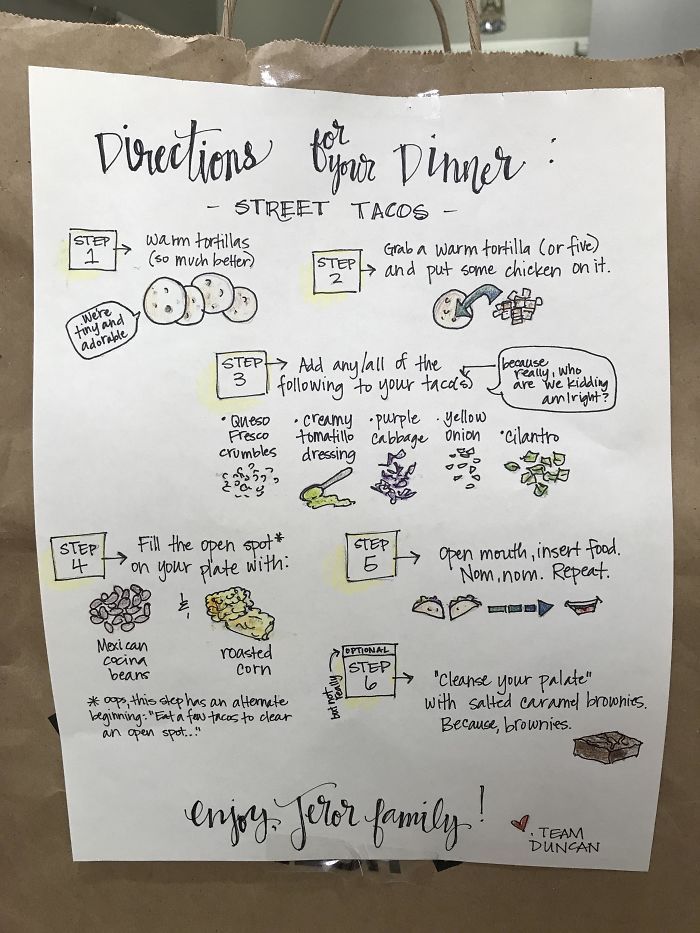 Directions for your Dinner:
- STREET TACOS -
STEP 1
warm tortillas
(so much better)
we're
tiny and
adorable
STEP 2
Grab a warm tortilla (or five)
and put some chicken on it.
STEP 3
Add any/all of the
following to your taco(s)
because
really, who
are we kidding
am I right?
• Queso
Fresco
crumbles
• creamy
tomatillo
dressing
• purple
cabbage
• yellow
onion
• cilantro
STEP 4
Fill the open spot*
on your plate with:
Mexican
cocina
beans
&
roasted
corn
* oops, this step has an alternate
beginning: "Eat a few tacos to clear
an open spot..."
STEP 5
Open mouth, insert food.
Nom, nom. Repeat.
OPTIONAL
but not
really
STEP 6
"Cleanse your palate"
with salted caramel brownies.
Because, brownies.
enjoy, Jeror family!
TEAM
DUNCAN